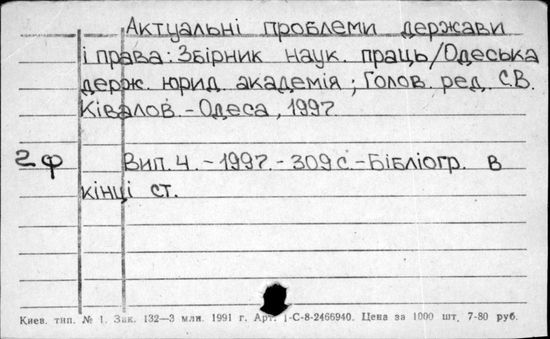 Актуальні проблеми держави
і права: Збірник наук. праць/Одеська
держ. юрид. академія; Голов. ред. С.В.
Ківалов. - Одеса, 1997.
2ф Вип. 4. - 1997. - 309 с. - Бібліогр. в
кінці ст.
Киев. тип. № 1. Зак. 132—3 млн. 1991 г. Арт. 1-С-8-2466940. Цена за 1000 шт. 7-80 руб.